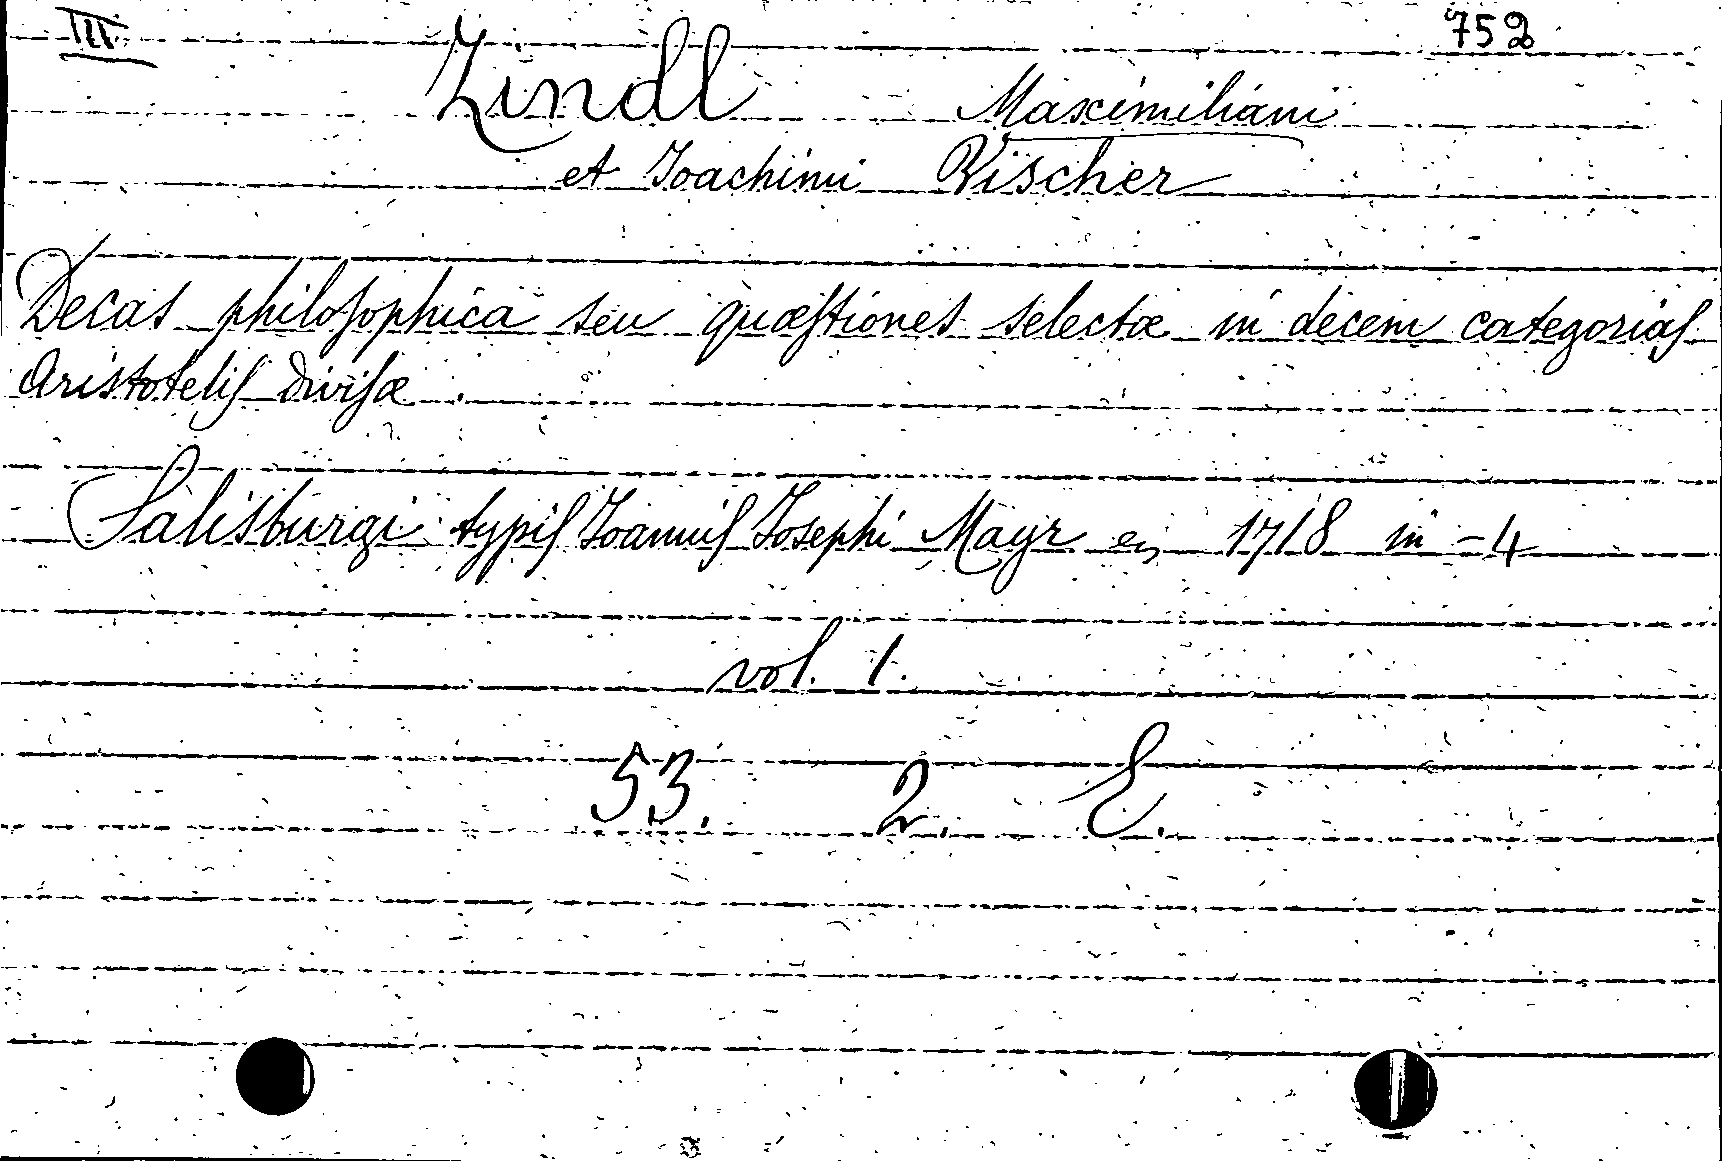 III 752
Zindl Maximiliani
et Joachimi Vischer
Decas philosophica seu quæstiones selectæ in decem categorias
Aristotelis divisæ.
Salisburgi typis Joannis Josephi Mayr en 1718 in -4
vol. 1.
53. 2. E.